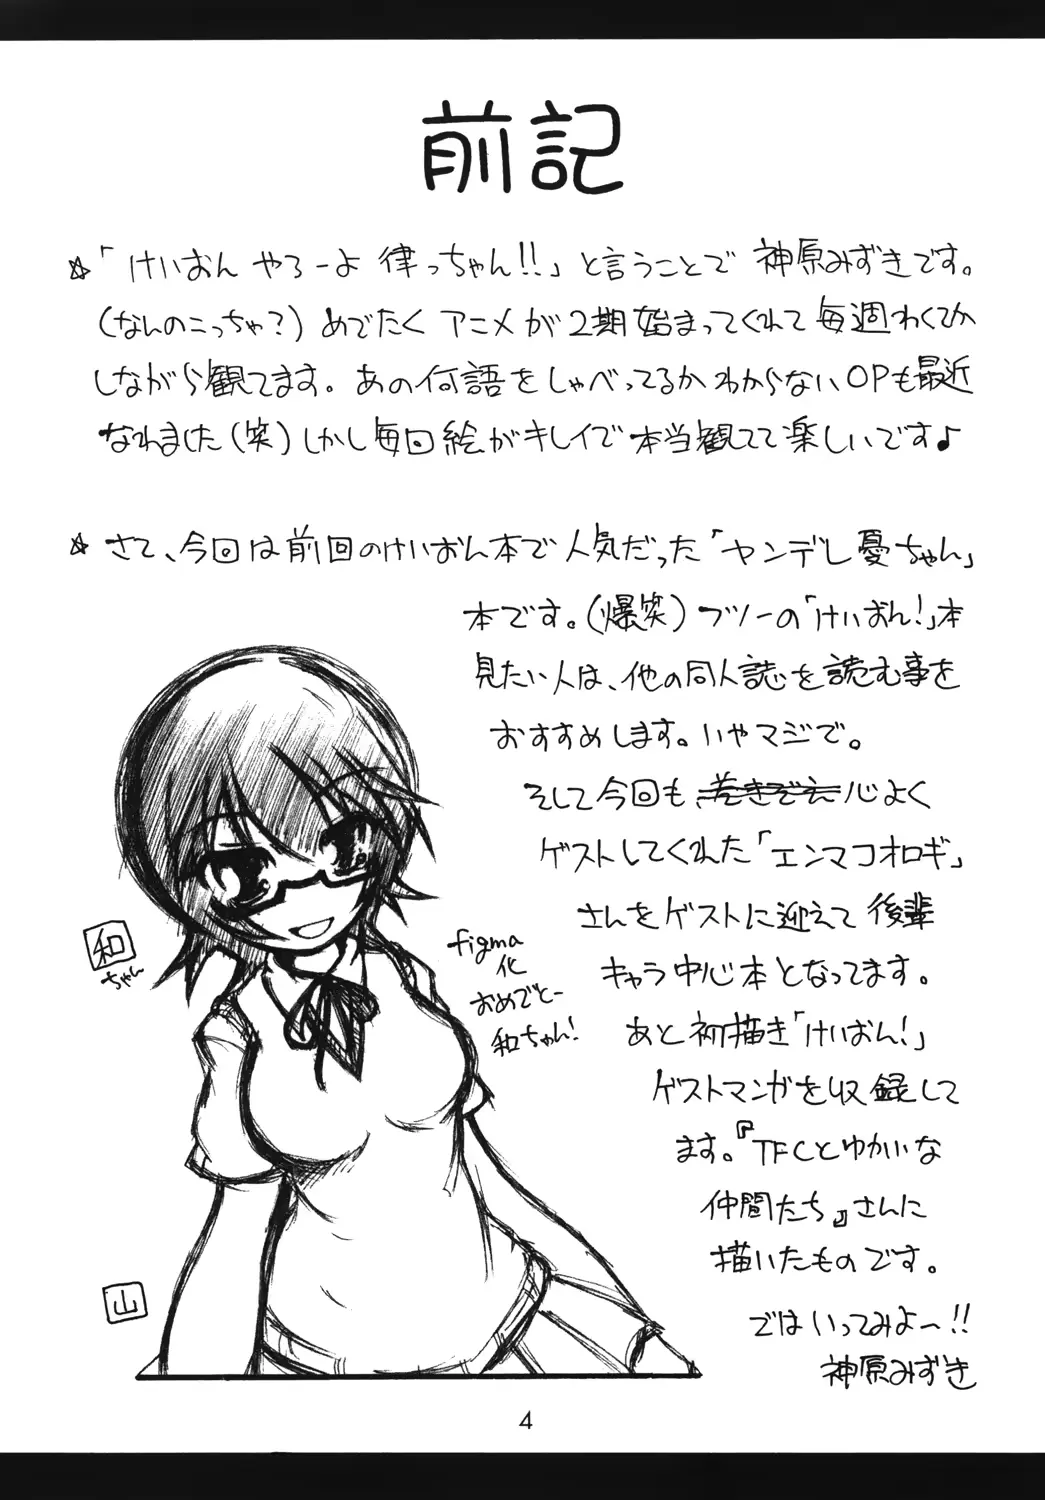 前記
☆「けいおん やろーよ 律っちゃん!!」と言うことで 神原みずきです。
(なんのこっちゃ?) めでたく アニメが 2期始まってくれて 毎週わくてか
しながら観てます。あの何語をしゃべってるか わからないOPも最近
なれました(笑) しかし毎回絵がキレイで 本当観てて楽しいです♪
☆ さて、今回は前回のけいおん本で人気だった「ヤンデレ憂ちゃん」
本です。(爆笑) フツーの「けいおん!」本
見たい人は、他の同人誌を読む事を
おすすめします。いやマジで。
そして今回も 巻きぞえ 心よく
ゲストしてくれた「エンマコオロギ」
さんをゲストに迎えて 後輩
キャラ中心本となってます。
あと 初描き「けいおん!」
ゲストマンガを収録して
ます。『TFCとゆかいな
仲間たち』さんに
描いたものです。
ではいってみよ〜!!
神原みずき
和
ちゃん
figma
化
おめでとー
和ちゃん!
山
4